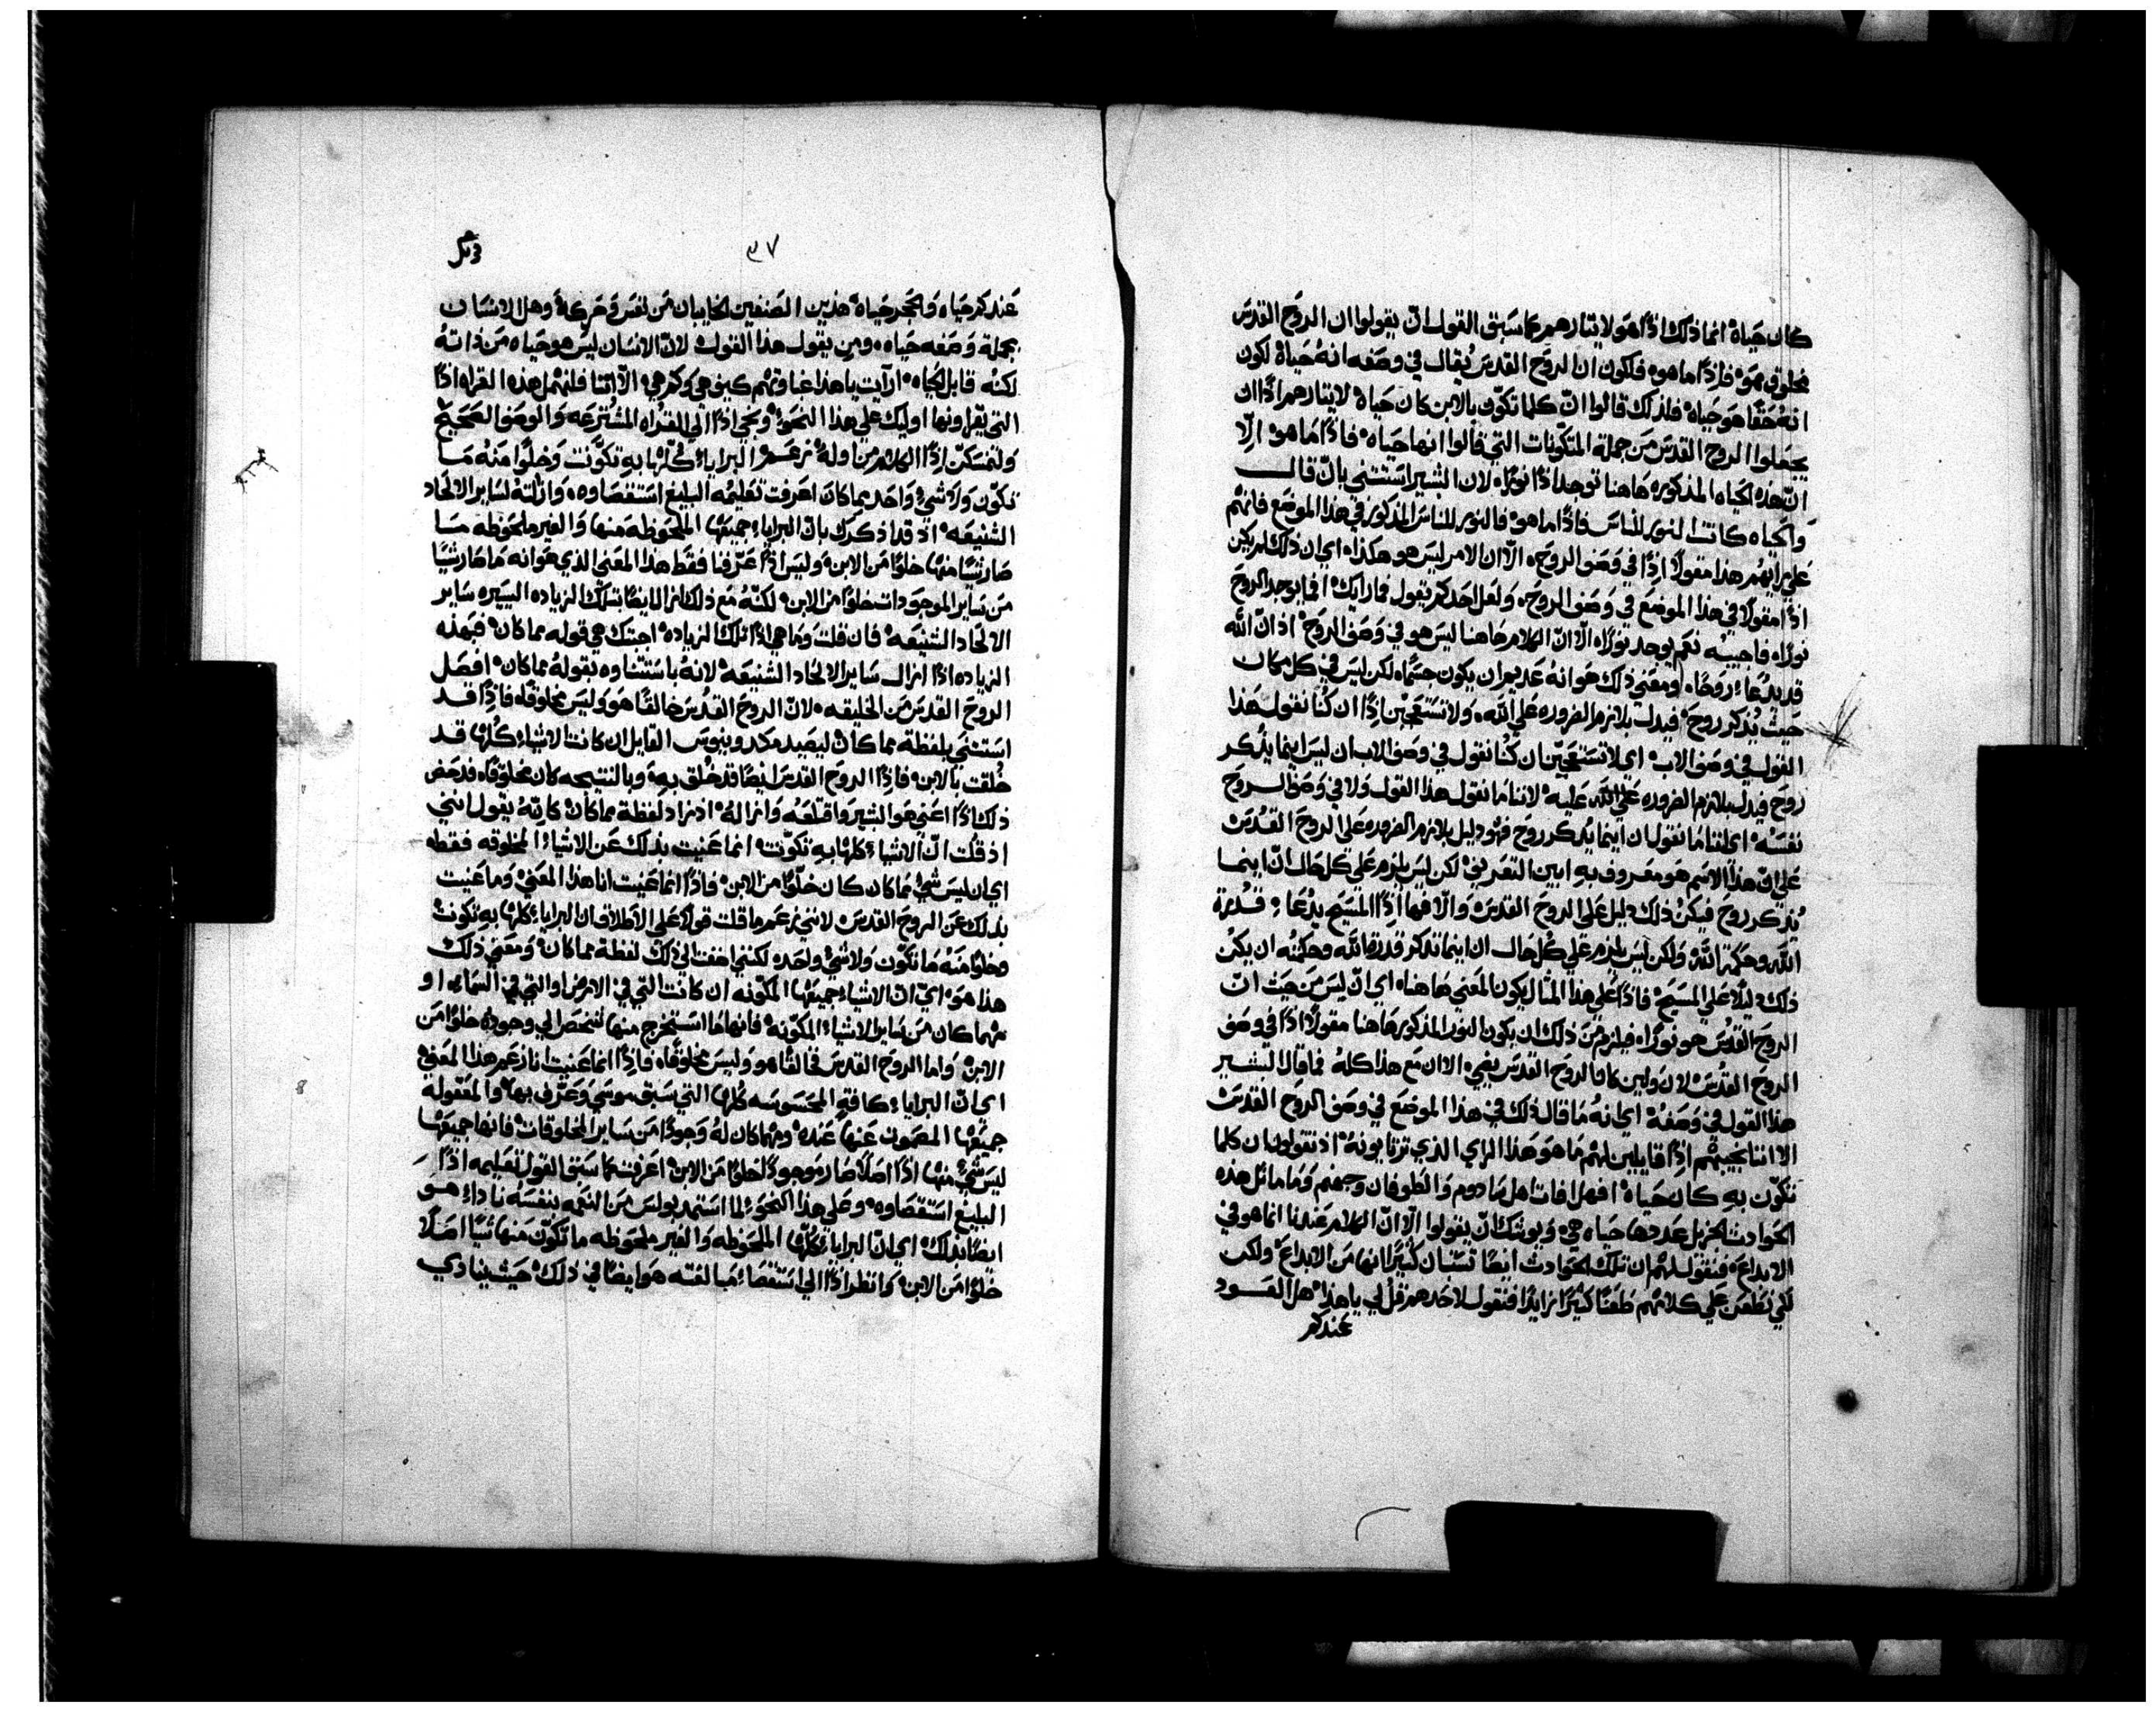 كان حَياةً انما ذلك اذًا هو لايتارهم كما سبق القول انّ يقولوا ان الروح القدس
مخلوق هوَ فاذًا ما هوه فلكون ان الروح القدس يُقال في وصفه انهُ حَياة لكون
انهُ حَقًا هو حَياة فلذلك قالوا انّ كلما تكوّن بالابن كان حَياة لايتارهم اذًا ان
يجعلوا الروح القدس من جملة المتكّونات التي قالوا انها حَياه فاذًا ما هو الّا
انّ هذه الحياه المذكوره هاهنا توجد اذًا نورًاه لان البشير استثنى بانّ قال
وَالحياه كانت النور للناس فاذًا ما هو فالنور للناس المذكور في هذا الموضع فانهُم
على رايهُم هذا مقولًا اذًا في وَصف الروح ه الّا ان الامر ليس هو هكذاه اي ان ذلك لم يكن
اذًا مقولًا في هذا الموضع في وَصف الروح ه ولعل احدكم يقول فما رايك افما يوجد الروح
نورًاه فاجيبُه نعَم يوجد نورًاه الّا انّ الكلام هاهنا ليس هو في وَصف الروح اذ انّ الله
قد يدُعاء روحًاه ومعنى ذلك هو انهُ عديم ان يكون جسمًاه لكن ليس في كل مكان
حيث يُذكر روح فيدل بلازم الضروره على الله ه ولا تستعجبّن اذًا ان كُنا نقول هذا
القول في وصف الاب اي لا تستعجبّن ان كُنا نقول في وصف الاب ان ليس اينما يذُكر
روح فيدل بلازم الضروره على الله عليه لاننا ما نقول هذا القول ولا في وَصف الروح
نفسهُ اي اننا ما نقول ان اينما يُذكر روح فهو دليل بلازم الضروره على الروح القدس
على انّ هذا الاسم هو معروف به ابين التعريف لكن ليس يلزم على كل حال انّ اينما
يُذكر روح فيكن ذلك دليل على الروح القدس والّا فهما اذًا المسيح يدُعاء قدرة
الله وحكمة الله ولكن ليس يلزم على كُل حال ان اينما تذكر قدرة الله وحكمته ان يكُن
ذلك دليلًا على المسيح فاذًا على هذا المثال يكون المعنى هاهناه اي ان ليس من حيث انّ
الروح القدس هو نورًاه فيلزم من ذلك ان يكون النور المذكور هاهنا مقولًا اذًا في وصف
الروح القدس لان ولين كان الروح القدس يضي ه الا ان مع هذا كلهُ فما قال البشير
هذا القول في وَصفهُ اي انهُ ما قال ذلك في هذا الموضع في وصف الروح القدس
الا اننا نجيبهُم اذًا قايلين لهُم ما هو هذا الراي الذي ترتايونهُ اذ تقولون ان كلما
تكوّن به كان حَياة افهل افات اهل سادوم والطوفان وجهنم وَما ماثل هذه
الحوادث الجزيل عددها حياه هي ه ويوشك انّ يقولوا الّا انّ الكلام عندنا انما هو في
الابداع ه فنقول لهُم ان تلك الحوادث ايضًا تستبان كثيرًا انها من الابداع ه ولكن
لكي نطعن على كلامهُم طعنًا كثيرًا زايدًا فنقول لاحدهم قُل لي يا هذا هل العود
عندكم
٣٧
عندكم حياه والحجر حياه هذين الصنفين الخايبان من نفس وَحركه وهل الانسان
بجملة وَصفه حياه ه ومن يقول هذا القول لانّ الانسان ليس هو حَياه من ذاتهُ
لكنُه قابل الحياه ه ارآيت يا هذا غباوتهُم كيف هي وكم هي ه الّا اننا فلنهمل هذه القراه اذًا
التي يقراونها اوليك على هذا النحو ونجي اذًا الي القراه المشترعه والوصف الصحيح
ولنمسكنّ اذًا الكلام من اولهُ زعم ه البرايا كلها به تكوَّنت وخلوًا منهُ ما
تكّون وَلا شيُ وَاحد مما كان اعرفت تعليمُه البليغ استقصاوه ه وازالتهُ لساير الالحاد
الشنيعَه اذ قد اذكرك بان البرايا جميعَها الملحوظه منها والغير ملحوظه ما
صار شيًا منهُا خلوًا من الابن ه وليس اذًا عرّفنا فقط هذا المعنى الذي هو انه ما صار شيًا
من ساير الموجودات خلوًا من الابن ه لكنّهُ مع ذلك ازال ايضًا بتلك الزياده اليسيره ساير
الالحاد الشنيعَه فان قلت وما هي اذًا تلك الزياده اجبتك هي قوله مما كان فبهذه
الزياده اذًا ازال ساير الالحاد الشنيعَه لانهُ باستثناوه بقولهُ مما كان افصل
الروح القدس من الخليقه ه لانّ الروح القدس خالقًا هو وليس مخلوقًاه فاذًا قد
استثنى بلفظة مما كان ليصيد مكدونيوس القايل ان كانت الاشياء كُلها قد
خُلقت بالابن ه فاذًا الروح القدس ايضًا قد خُلق به ه وبالنتيجه كان مخلوقًاه فدحض
ذلك اذًا اعني هو البشير واقتلعَه وازالهُ اذ زاد لفظة مما كان كانهُ يقول انني
اذ قلُت انّ الاشياء كلها به تكوّنت انما عنيت بذلك عن الاشياء المخلوقه فقطه
اي ان ليس شيُ مما كان كان خلوًا من الابن ه فاذًا انما عَنيت انا هذا المعنى وما عَنيت
بذلك عن الروح القدس ه لانني زعم ما قلت قولًا على الاطلاق ان البرايا كلها به تكونت
وخلوًا منهُ ما تكّون ولا شيُ واحده لكنني اضفت الي ذلك لفظة مما كان ومعنى ذلك
هذا هوَ ه ايّ انّ الاشياء جميعَها المكوّنه ان كانت التي في الارض او التي في السماء او
مهما كان من ساير الاشياء المكوّنه فانها ما استخرج منها شخص الي وجودهُ خلوًا من
الابن ه واما الروح القدس فخالقًا هو وليس مخلوقًاه فاذًا انما عَنيت انا زعَم هذا المعَني ه
اي انّ البرايا كافة المحسوسه كُلها التي سبق موسي وَعَرّف بها ه والمعَقوله
جميعُها المصموت عَنها عَنده ه ومهما كان لهُ وجودًا من ساير المخلوقات فانها جميعَها
ليس شيُ منهُا اذًا اصلًا صار موجودًا خلوًا من الابن ه اعرفت كما سبق القول تعليمه اذًا
البليغ استقصاوه ه وعلى هذا النحو لما استمد بولس من النعمه لنفسه نادا هو
ايضًا بذلك اي انّ البرايا كلها الملحوظه والغير ملحوظه ما تكوّن منها شيًا اصلًا
خلوًا من الابن ه وانظر اذًا الي استقصاء مبالغته هو ايضًا في ذلك ه حيث ينادي